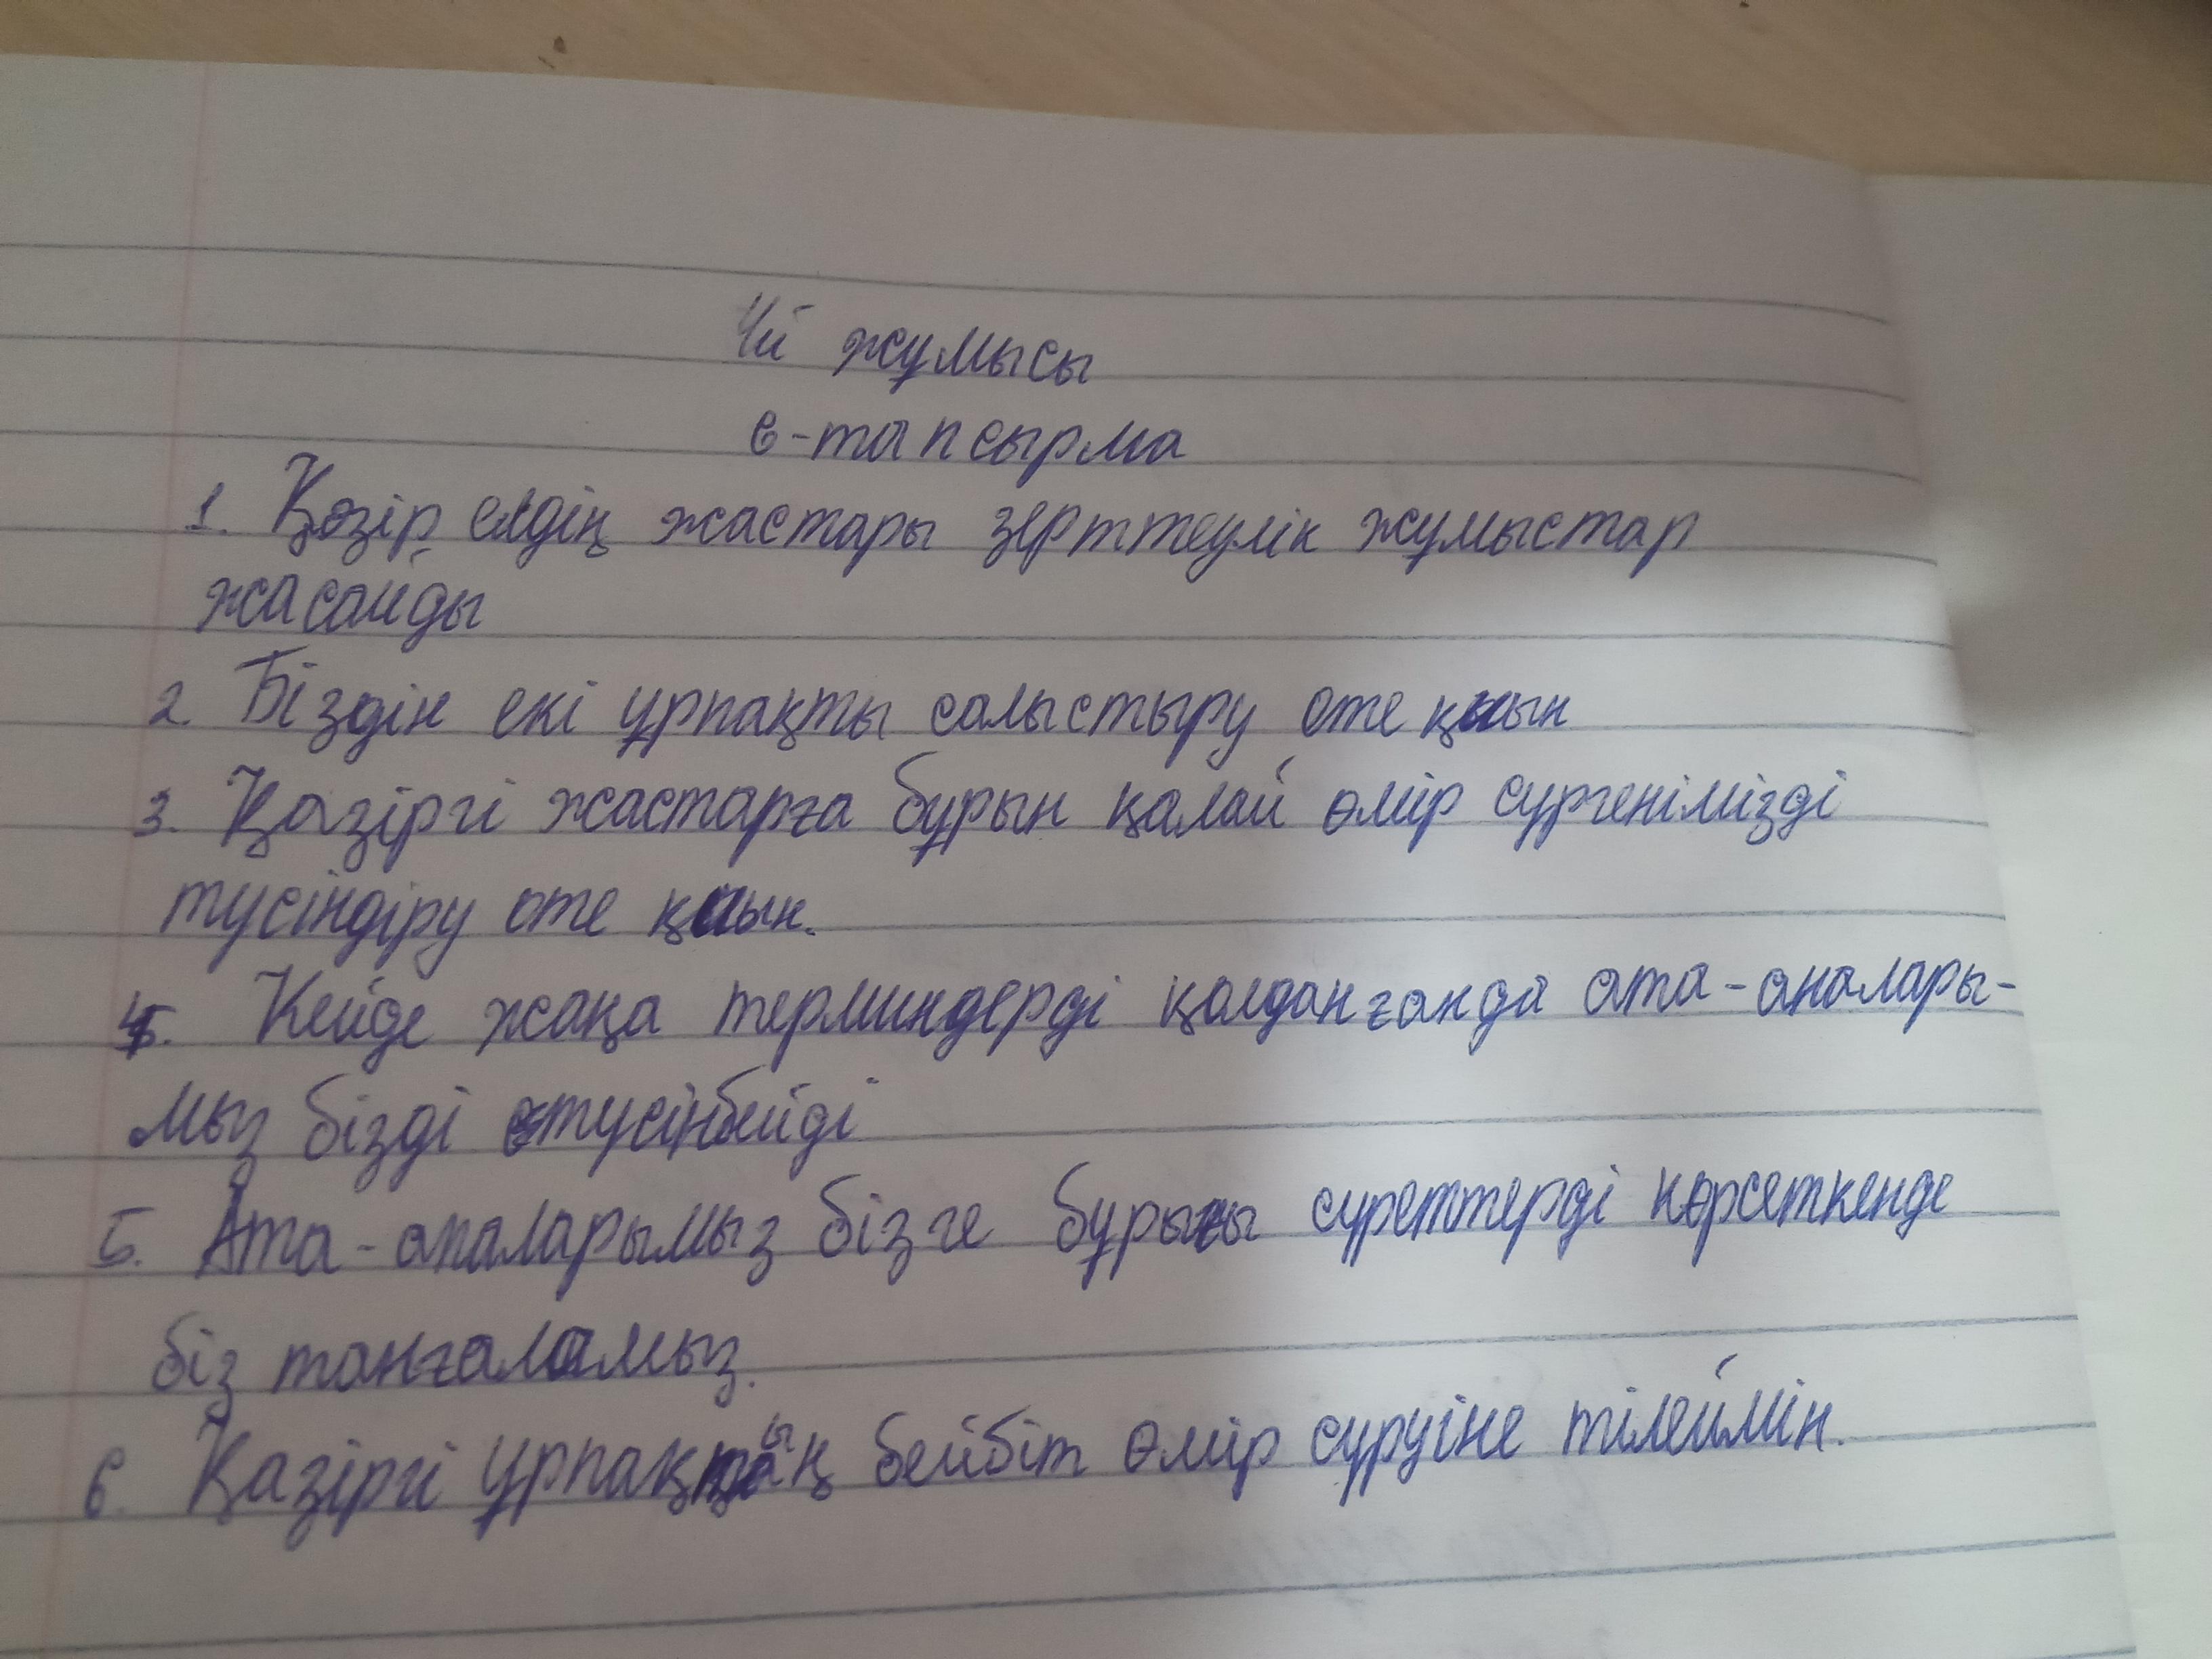 Үй жұмысы
6-тапсырма
1. Қазір елдің жастары зерттеулік жұмыстар
жасайды
2. Біздін екі ұрпақты салыстыру оте қиын
3. Қазіргі жастарға бұрын қалай өмір сургенімізді
тусіндіру оте қиын.
4. Кейде жаңа терминдерді қолданғанда ата-аналары-
мыз бізді тусінбейді
5. Ата-аналарымыз бізге бұрынғы суреттерді көрсеткенде
біз танғаламыз.
6. Қазіргі ұрпақтың бейбіт өмір суруіне тілеймін.